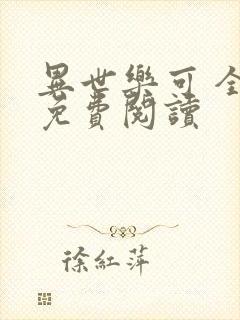 異世樂可全
免費閱讀
徐紅萍